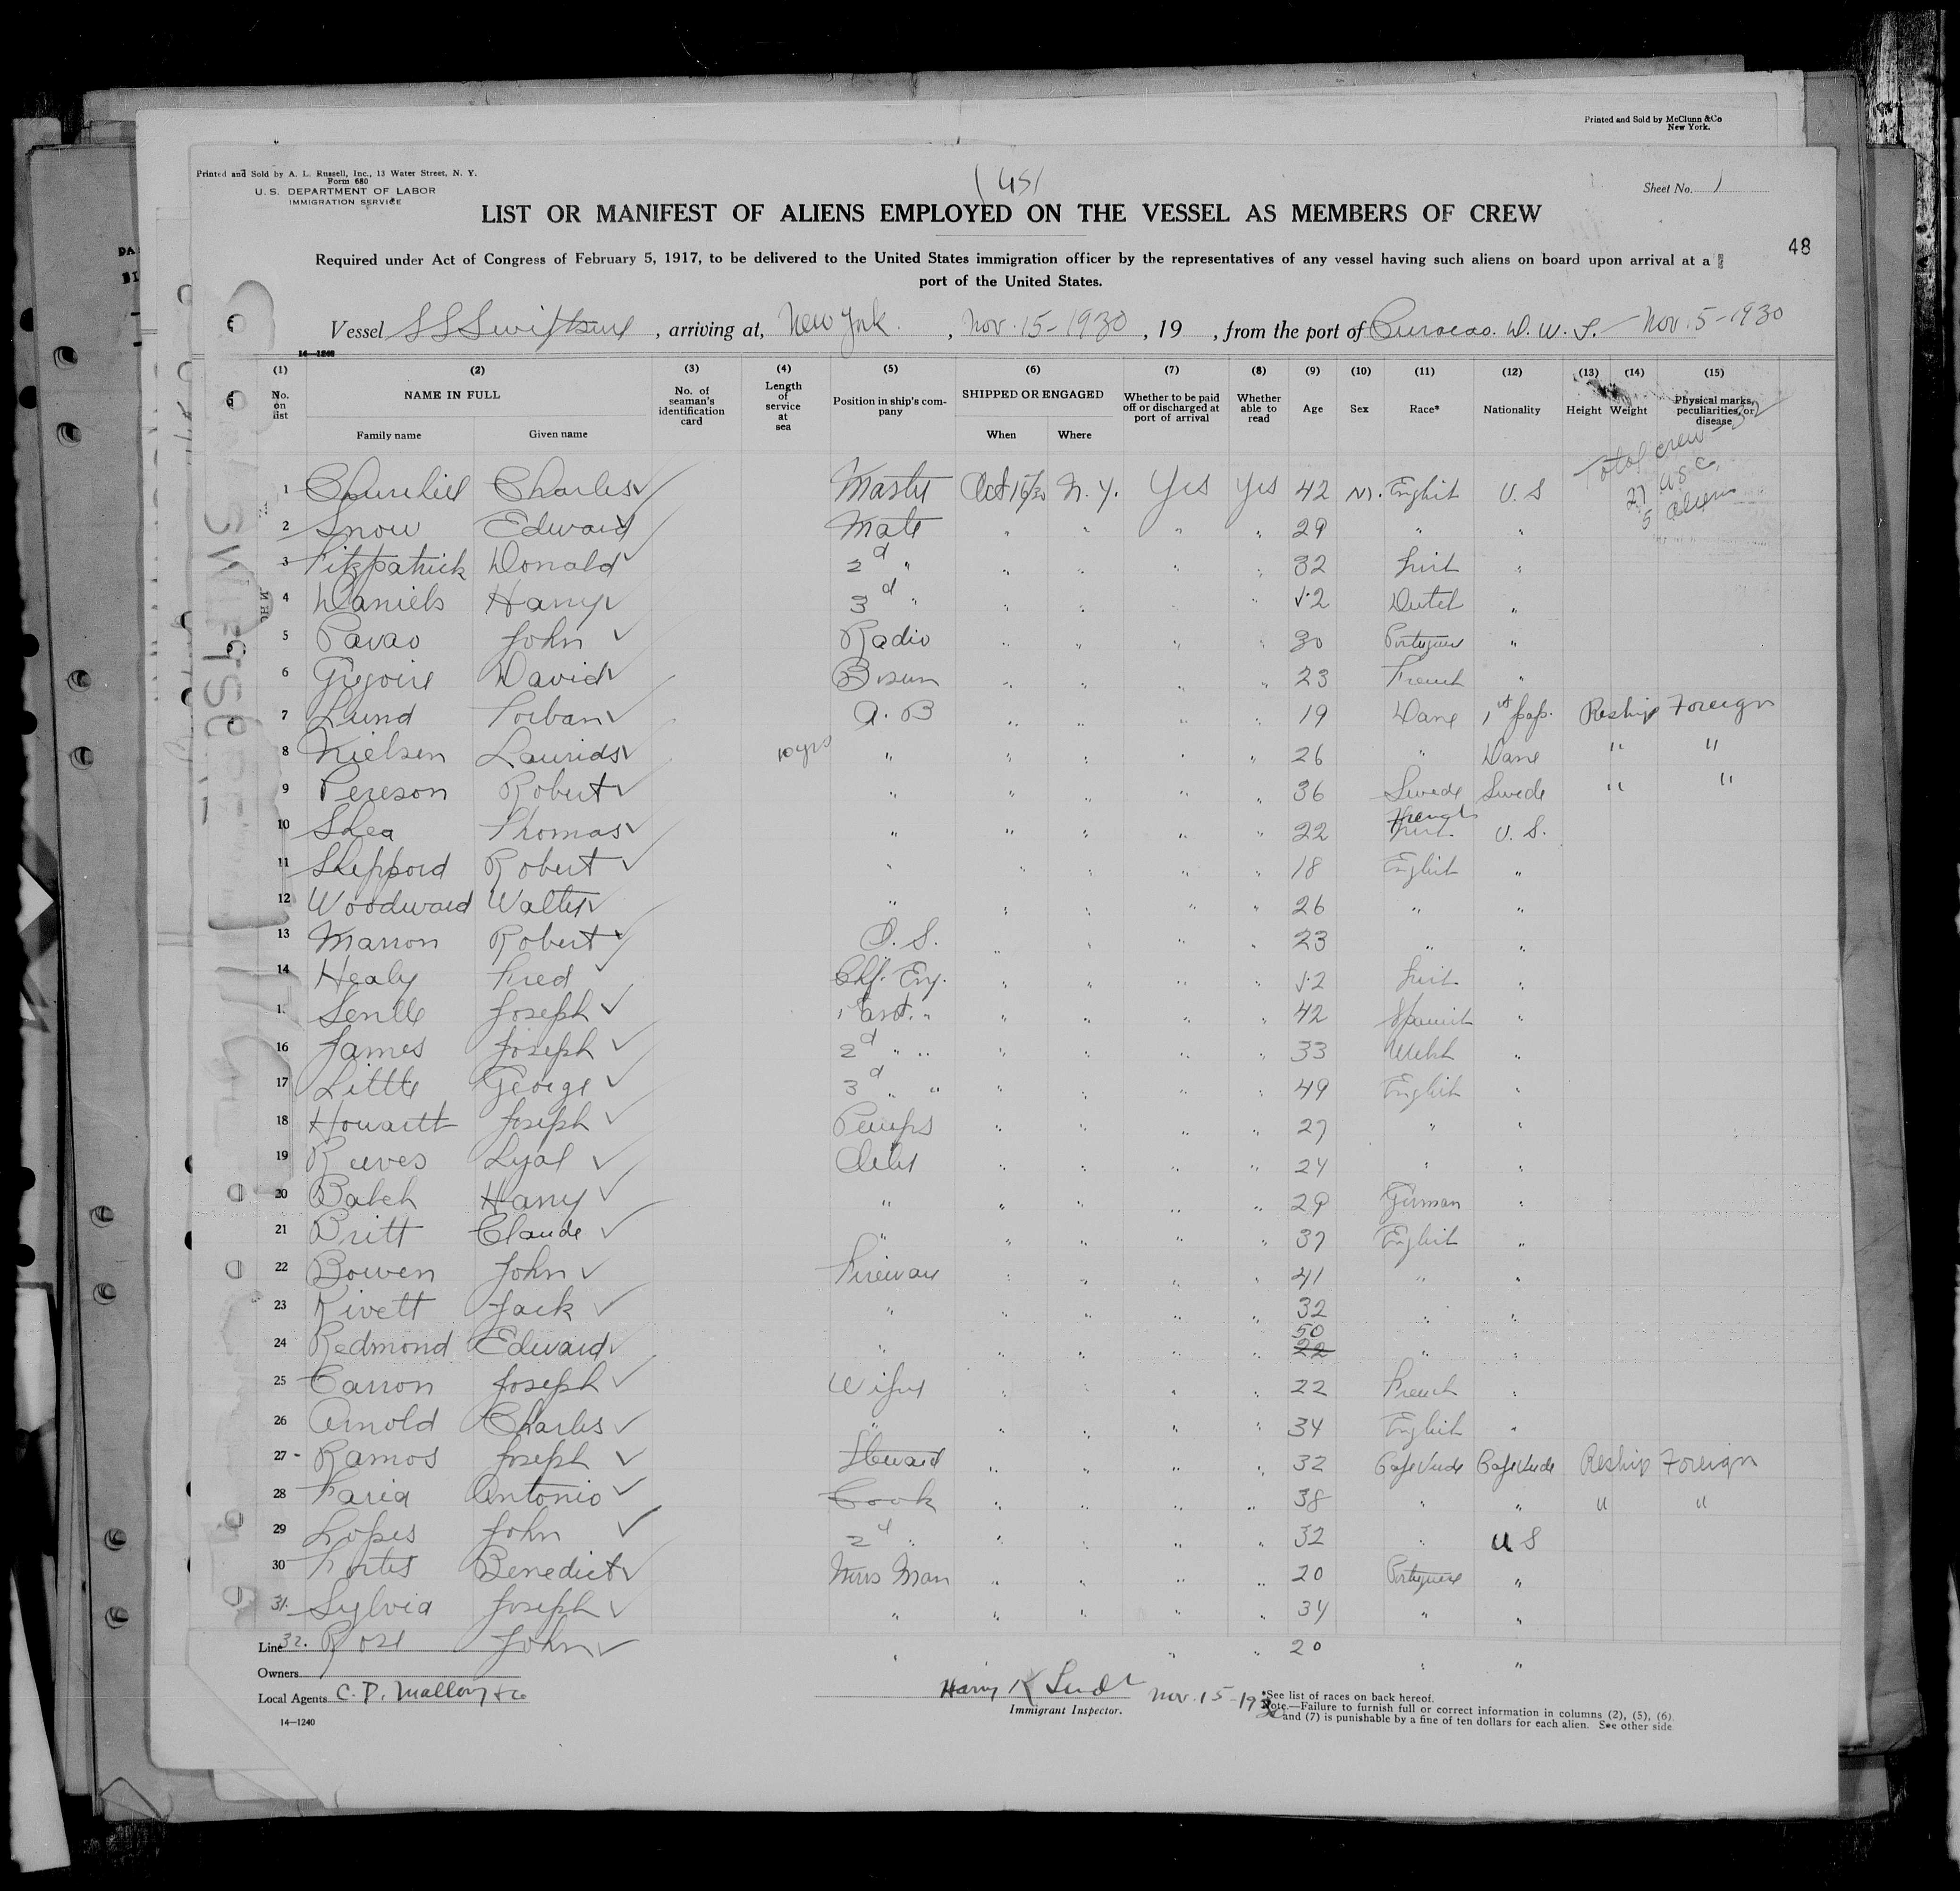 Printed and Sold by McClunn & Co
New York.
Printed and Sold by A. L. Russell, Inc., 13 Water Street, N. Y.
Form 680
U. S. DEPARTMENT OF LABOR
IMMIGRATION SERVICE
Sheet No. 1
LIST OR MANIFEST OF ALIENS EMPLOYED ON THE VESSEL AS MEMBERS OF CREW
48
Required under Act of Congress of February 5, 1917, to be delivered to the United States immigration officer by the representatives of any vessel having such aliens on board upon arrival at a
port of the United States.
Vessel SS , arriving at, New York. , Nov. 15-1930 , 19 , from the port of Curacao. D. W. I. - Nov. 5-1930
14—1240
(1) (2) (3) (4) (5) (6) (7) (8) (9) (10) (11) (12) (13) (14) (15)
No. on list NAME IN FULL Family name Given name No. of seaman's identification card Length of service at sea Position in ship's company SHIPPED OR ENGAGED When Where Whether to be paid off or discharged at port of arrival Whether able to read Age Sex Race* Nationality Height Weight Physical marks, peculiarities, or disease
Total crew - 32
27 USC
5 aliens
1 Churchill Charles Master Oct 16/30 N. Y. Yes Yes 42 M. English U. S
2 Snow Edward Mate " " " " 29 " "
3 Fitzpatrick Donald 2d " " " " " 32 Irish "
4 Daniels Harry 3d " " " " 52 Dutch "
5 Pavao John Radio " " " " 30 Portuguese "
6 Gregoire David Bosun " " " " 23 French "
7 Lund Torban A. B " " " " 19 Dane 1st pap. Reship Foreign
8 Nielsen Laurids 10 yrs " " " " " 26 " Dane " "
9 Pereson Robert " " " " " 36 Swede Swede " "
10 Shea Thomas " " " " " 22 French U. S.
11 Sheppord Robert " " " " " 18 English "
12 Woodward Walter " " " " " 26 " "
13 Marron Robert O. S. " " " " 23 " "
14 Healy Fred Chf. Eng. " " " " 52 Irish "
15 Joseph 1 asst. " " " " " 42 Spanish "
16 James Joseph 2d " " " " " " 33 Welsh "
17 Little George 3d " " " " " " 49 English "
18 Howartt Joseph Pumps " " " " 27 " "
19 Reeves Lyal Oiler " " " " 24 " "
20 Balch Harry " " " " " 29 German "
21 Britt Claude " " " " " 37 English "
22 Bowen John Fireman " " " " 41 " "
23 Rivett Jack " " " " " 32 " "
24 Redmond Edward " " " " " 50 22 " "
25 Carron Joseph Wiper " " " " 22 French "
26 Arnold Charles " " " " " 34 English "
27 - Ramos Joseph Steward " " " " 32 Cape Verde Cape Verde Reship Foreign
28 Faria Antonio Cook " " " " 38 " " " "
29 Lopes John 2d " " " " " 32 " U S
30 Fortes Benedict Mess Man " " " " 20 Portuguese "
31 Sylvia Joseph " " " " " 34 " "
Line 32. Rose John " " " 20 " "
Owners
Local Agents C. D. Mallory & Co
Harry K Nov. 15-1930
Immigrant Inspector.
*See list of races on back hereof.
Note.—Failure to furnish full or correct information in columns (2), (5), (6)
and (7) is punishable by a fine of ten dollars for each alien. See other side
14—1240